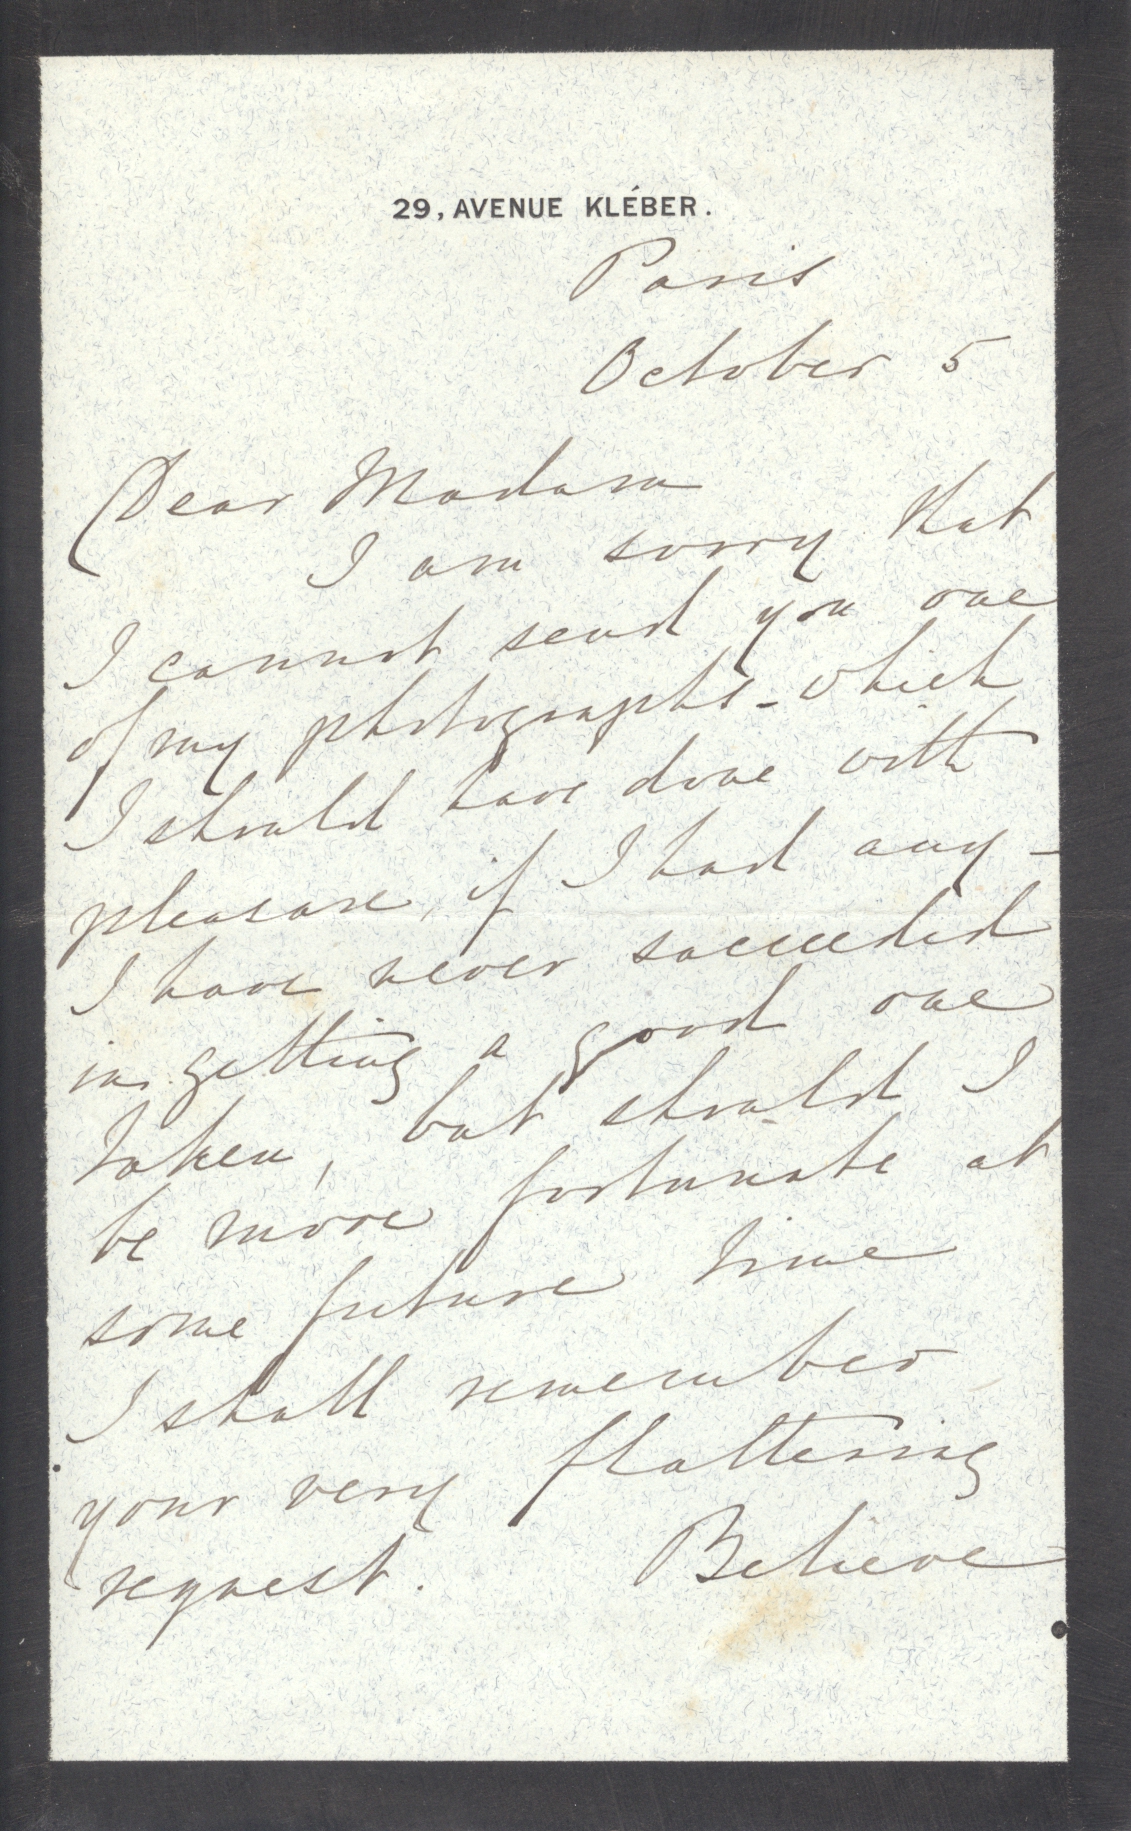 29, AVENUE KLÉBER.
Paris
October 5
Dear Madam
I am sorry that
I cannot send you one
of my photographs - which
I should have done with
pleasure, if I had any -
I have never succeeded
in getting a good one
taken, but should I
be more fortunate at
some future time
I shall remember
your very flattering
request. Believe